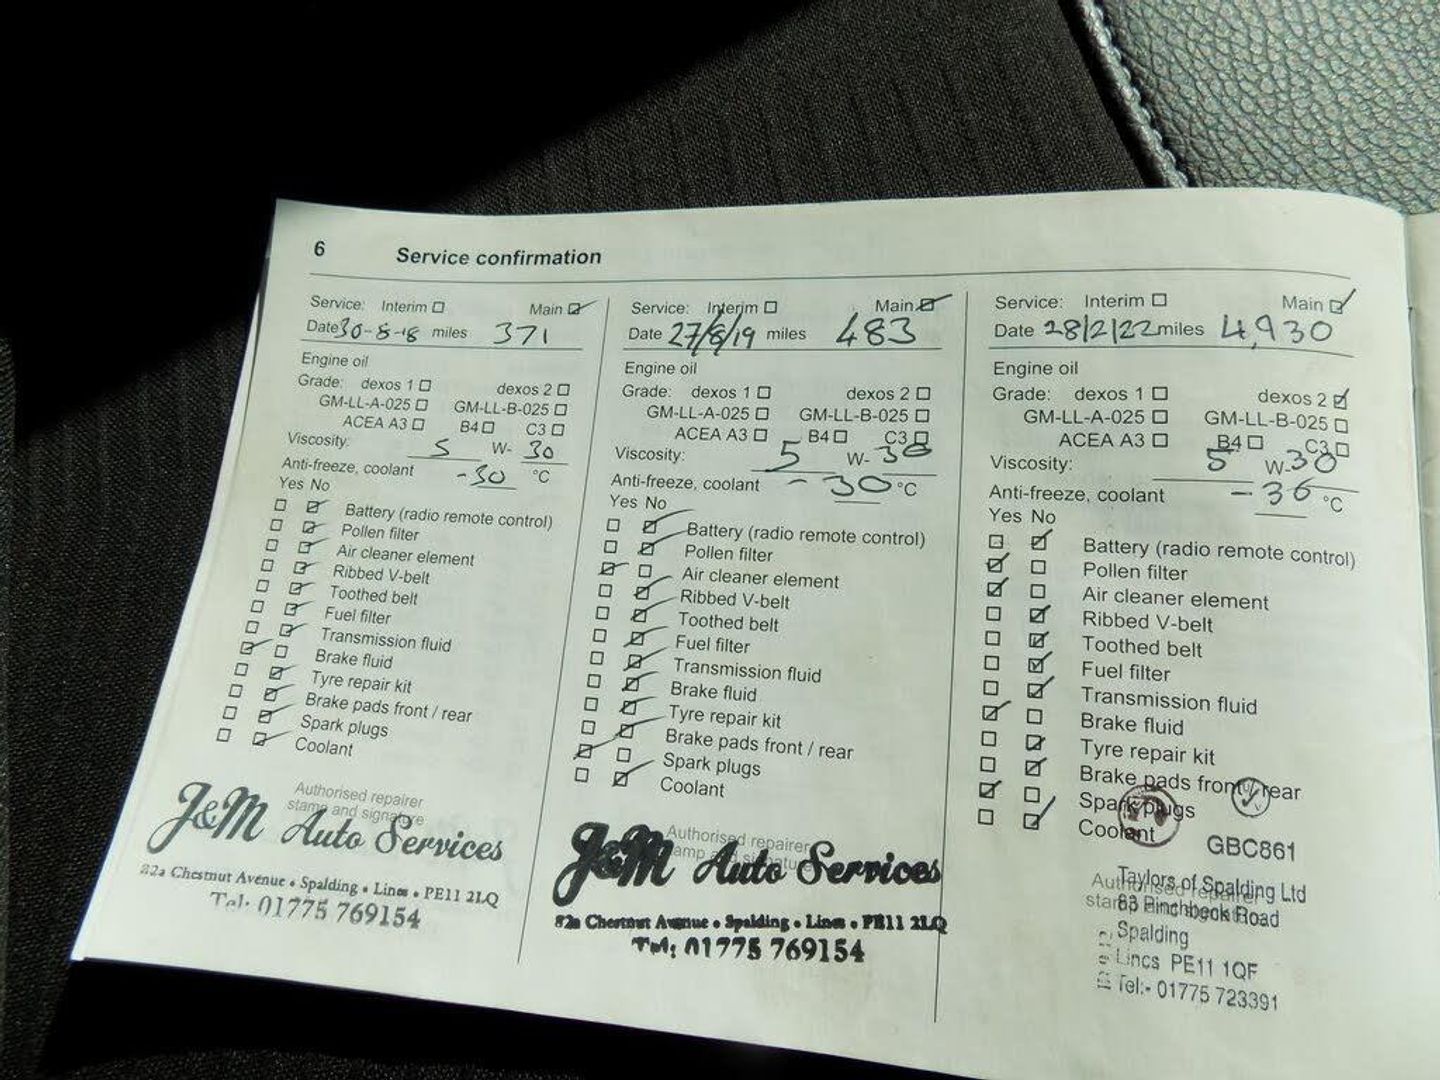 6 Service confirmation
Service: Interim ☐ Main ☑
Date 30-8-18 miles 371
Engine oil
Grade: dexos 1 ☐ dexos 2 ☐
GM-LL-A-025 ☐ GM-LL-B-025 ☐
ACEA A3 ☐ B4 ☐ C3 ☐
Viscosity: 5 W- 30
Anti-freeze, coolant -30 °C
Yes No
☐ ☑ Battery (radio remote control)
☐ ☑ Pollen filter
☐ ☑ Air cleaner element
☐ ☑ Ribbed V-belt
☐ ☑ Toothed belt
☐ ☑ Fuel filter
☐ ☑ Transmission fluid
☑ ☐ Brake fluid
☐ ☑ Tyre repair kit
☐ ☑ Brake pads front / rear
☐ ☑ Spark plugs
☐ ☑ Coolant
Authorised repairer
stamp and signature
J&M Auto Services
82a Chestnut Avenue • Spalding • Lincs • PE11 2LQ
Tel: 01775 769154
Service: Interim ☐ Main ☑
Date 27/8/19 miles 483
Engine oil
Grade: dexos 1 ☐ dexos 2 ☐
GM-LL-A-025 ☐ GM-LL-B-025 ☐
ACEA A3 ☐ B4 ☐ C3 ☐
Viscosity: 5 W- 30
Anti-freeze, coolant -30 °C
Yes No
☐ ☑ Battery (radio remote control)
☐ ☑ Pollen filter
☑ ☐ Air cleaner element
☐ ☑ Ribbed V-belt
☐ ☑ Toothed belt
☐ ☑ Fuel filter
☐ ☑ Transmission fluid
☐ ☑ Brake fluid
☐ ☑ Tyre repair kit
☐ ☑ Brake pads front / rear
☑ ☐ Spark plugs
☐ ☑ Coolant
Authorised repairer
stamp and signature
J&M Auto Services
82a Chestnut Avenue • Spalding • Lincs • PE11 2LQ
Tel: 01775 769154
Service: Interim ☐ Main ☑
Date 28/2/22 miles 4,930
Engine oil
Grade: dexos 1 ☐ dexos 2 ☑
GM-LL-A-025 ☐ GM-LL-B-025 ☐
ACEA A3 ☐ B4 ☐ C3 ☐
Viscosity: 5 W-30
Anti-freeze, coolant -36 °C
Yes No
☐ ☑ Battery (radio remote control)
☑ ☐ Pollen filter
☑ ☐ Air cleaner element
☐ ☑ Ribbed V-belt
☐ ☑ Toothed belt
☐ ☑ Fuel filter
☐ ☑ Transmission fluid
☑ ☐ Brake fluid
☐ ☑ Tyre repair kit
☐ ☑ Brake pads front / rear
☑ ☐ Spark plugs
☐ ☑ Coolant
GBC861
Authorised repairer
stamp and signature
Taylors of Spalding Ltd
83 Pinchbeck Road
Spalding
Lincs PE11 1QF
Tel:- 01775 723391